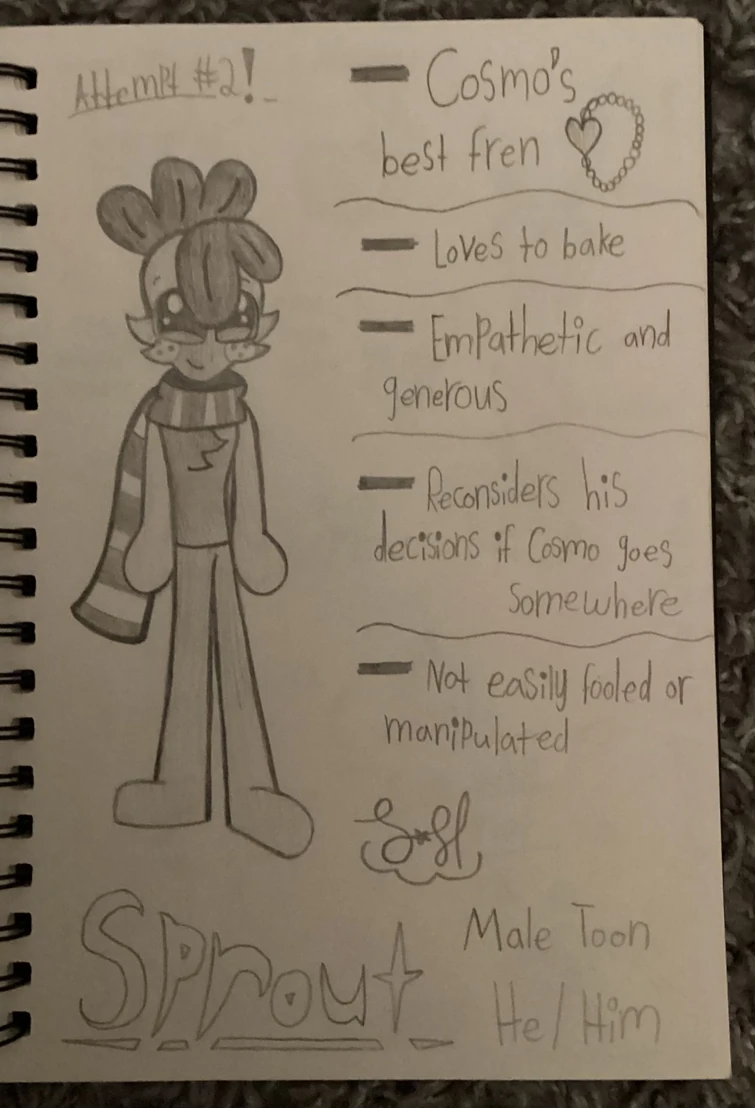 Attempt #2!
- Cosmo's
best fren
- Loves to bake
- Empathetic and
generous
- Reconsiders his
decisions if Cosmo goes
somewhere
- Not easily fooled or
manipulated
Sprout
Male Toon
He/Him